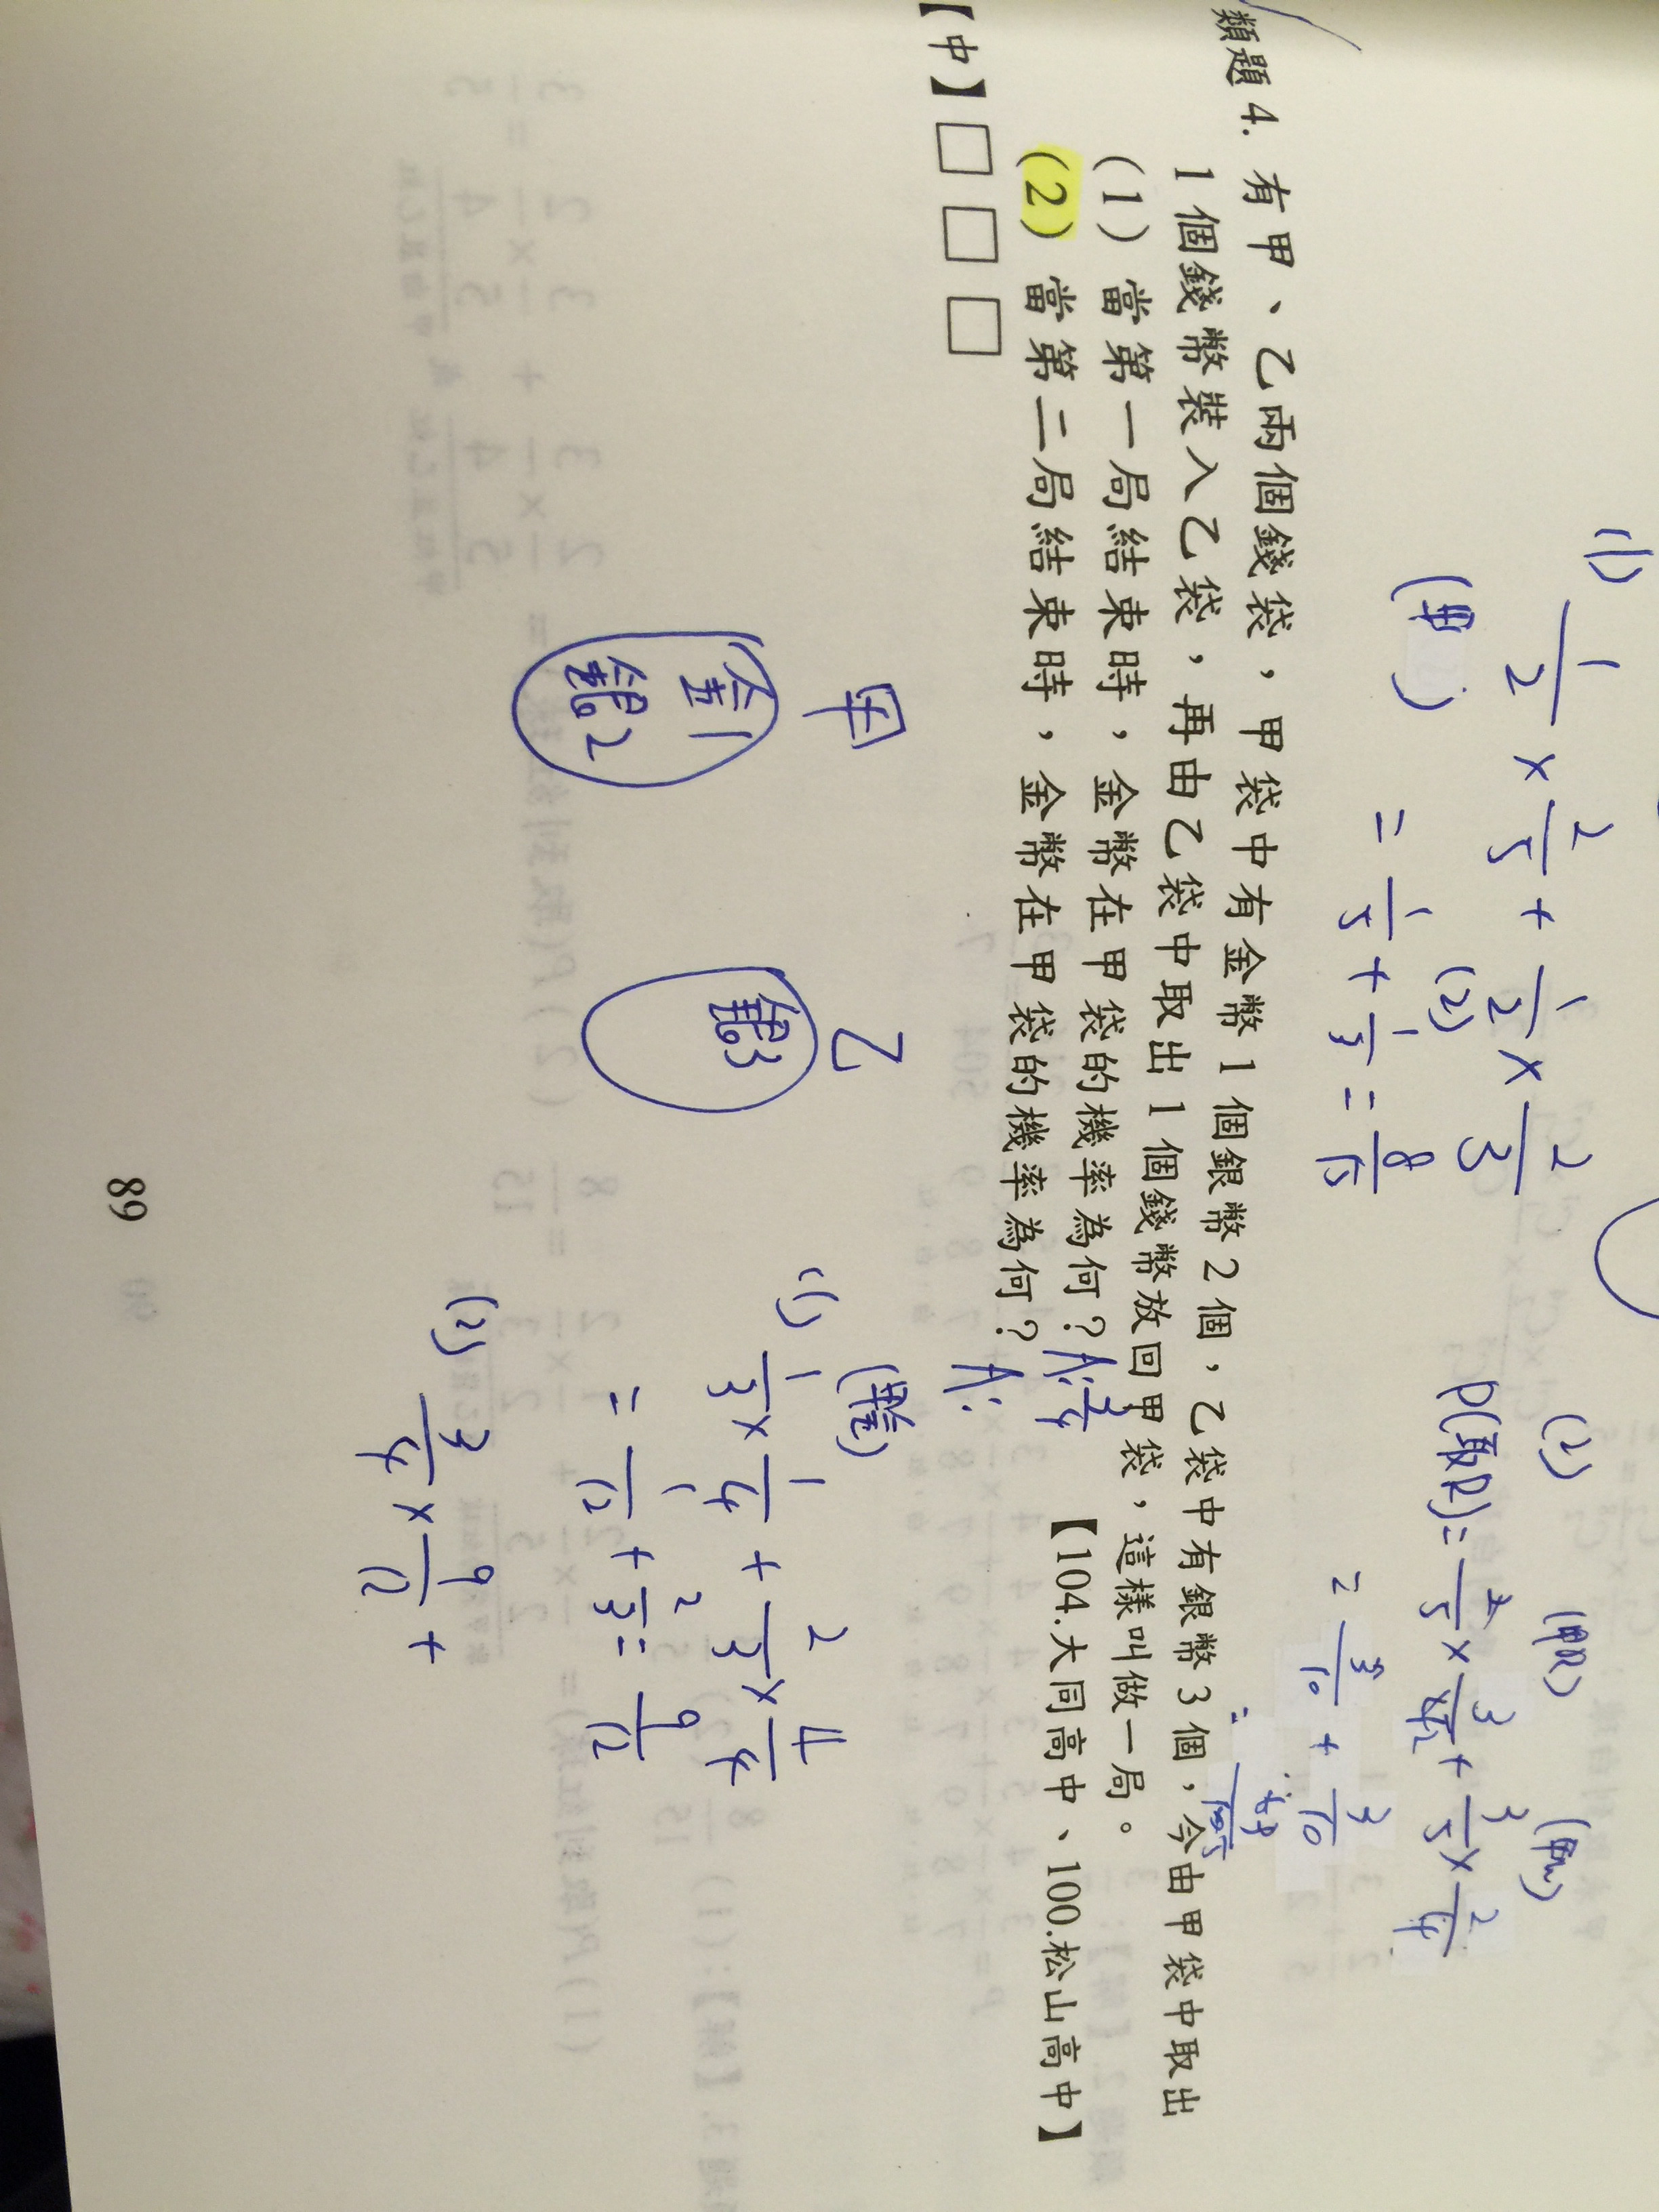 (1) 1/2 × 2/5 + 1/2 × 2/3
= 1/5 + 1/3 = 8/15
(2)
(2)
= 3/10 + 3/10
類題 4. 有甲、乙兩個錢袋，甲袋中有金幣 1 個銀幣 2 個，乙袋中有銀幣 3 個，今由甲袋中取出
1 個錢幣裝入乙袋，再由乙袋中取出 1 個錢幣放回甲袋，這樣叫做一局。
(1) 當第一局結束時，金幣在甲袋的機率為何？ A: 3/4
(2) 當第二局結束時，金幣在甲袋的機率為何？ A:
【104.大同高中、100.松山高中】
【中】□□□
甲
金1
銀2
乙
銀3
(1) 1/3 × 1/4 + 2/3 × 4/4
= 1/12 + 2/3 = 9/12
(2) 3/4 × 9/12 +
89